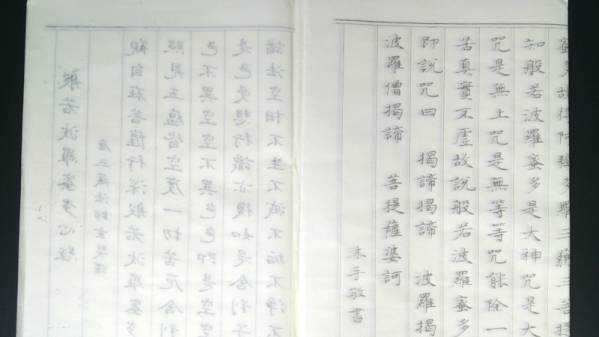 般若波羅蜜多心經
唐三藏法師玄奘譯
觀自在菩薩行深般若波羅蜜多
照見五蘊皆空度一切苦厄舍利
色不異空空不異色色即是空空
是色受想行識亦復如是舍利子
諸法空相不生不滅不垢不淨不
蜜多故得阿耨多羅三藐三菩提
知般若波羅蜜多是大神咒是大
咒是無上咒是無等等咒能除一
苦真實不虛故說般若波羅蜜多
即說咒曰 揭諦揭諦 波羅揭
波羅僧揭諦 菩提薩婆訶
手敬書